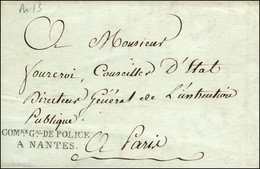 An 13
A Monsieur
Fourcroi, Conseiller D'Etat
Directeur Général de L'instruction
Publique.
COMre. Gal. DE POLICE
A NANTES.
A Paris